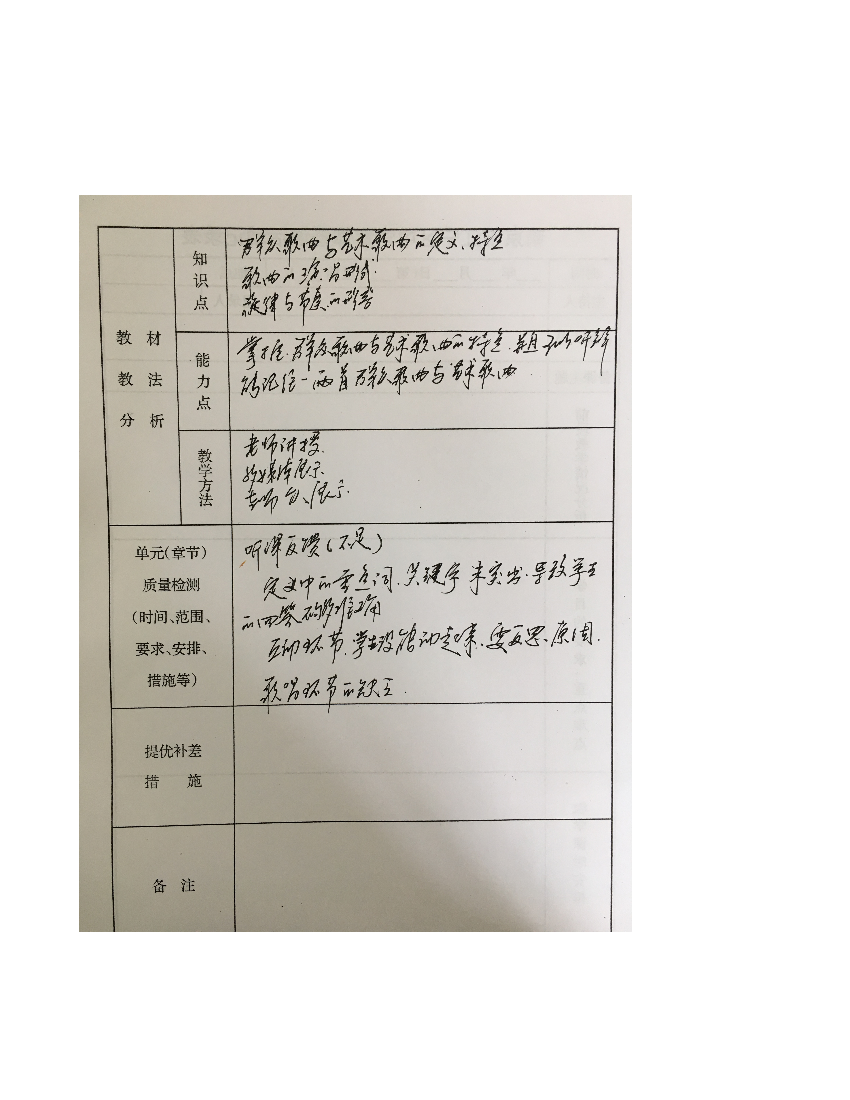 知识点
群众歌曲与艺术歌曲的定义、特点
歌曲的演唱形式
旋律与节奏的形态
教材
教法
分析
能力点
掌握群众歌曲与艺术歌曲的特点,并且可以听辨
能记住一两首群众歌曲与艺术歌曲
教学方法
老师讲授
多媒体展示
老师自、展示
单元(章节)
质量检测
(时间、范围、
要求、安排、
措施等)
听课反馈(不足)
定义中的重点词、关键字未突出,导致学生
的回答不够准确
互动环节,学生没能动起来,要反思、原因.
歌唱环节的缺乏.
提优补差
措 施
备 注